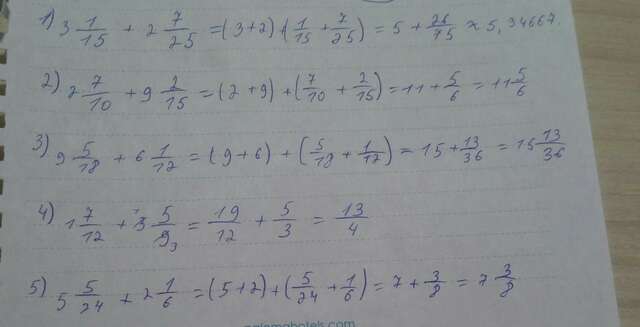 1) 3 1/15 + 2 7/25 = (3+2)+(1/15 + 7/25) = 5 + 26/75 ≈ 5,34667.
2) 2 7/10 + 9 2/15 = (2+9) + (7/10 + 2/15) = 11 + 5/6 = 11 5/6
3) 9 5/18 + 6 1/12 = (9+6) + (5/18 + 1/12) = 15 + 13/36 = 15 13/36
4) 1 7/12 + 3 5/9 3 = 19/12 + 5/3 = 13/4
5) 5 5/24 + 2 1/6 = (5+2)+(5/24 + 1/6) = 7 + 3/8 = 7 3/8